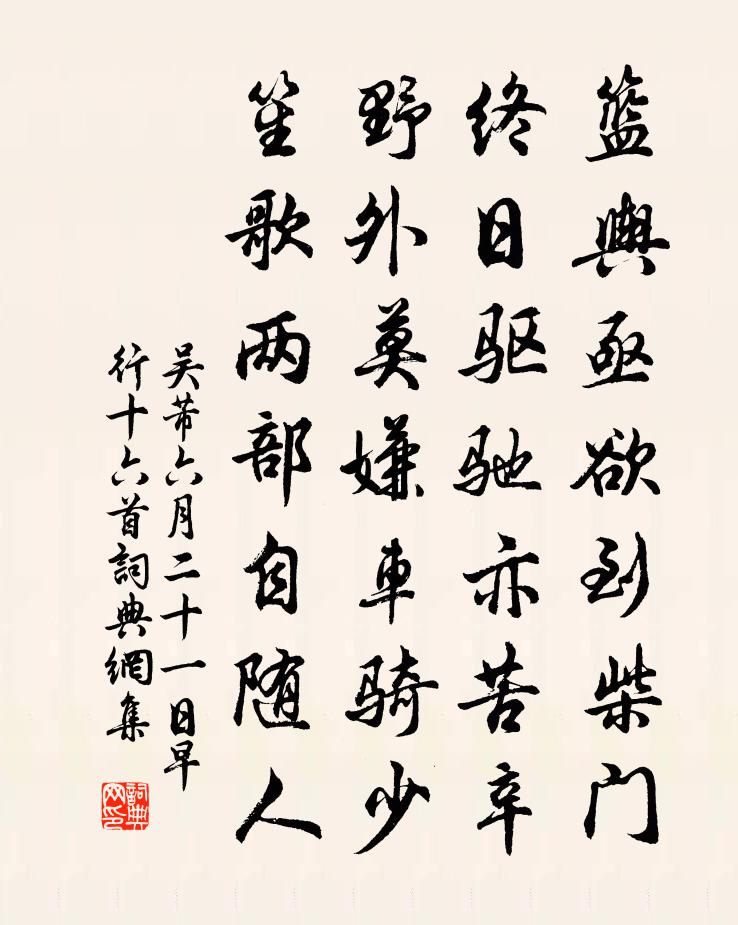 篮輿亟欲到柴门
终日驱驰亦苦辛
野外莫嫌車骑少
笙歌两部自随人
吴芾六月二十一日早
行十六首詞典網集
詞典
网印